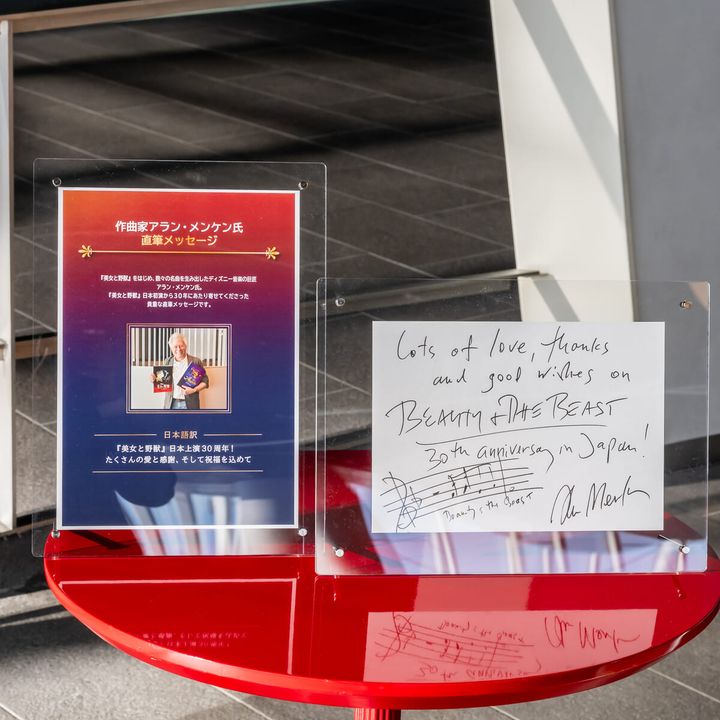 作曲家アラン・メンケン氏
直筆メッセージ
『美女と野獣』をはじめ、数々の名曲を生み出したディズニー音楽の巨匠
アラン・メンケン氏。
『美女と野獣』日本初演から30年にあたり寄せてくださった
貴重な直筆メッセージです。
日本語訳
『美女と野獣』日本上演30周年！
たくさんの愛と感謝、そして祝福を込めて
Lots of love, thanks
and good wishes on
BEAUTY & THE BEAST
30th anniversary in Japan!
Beauty & the Beast
Alan Menken